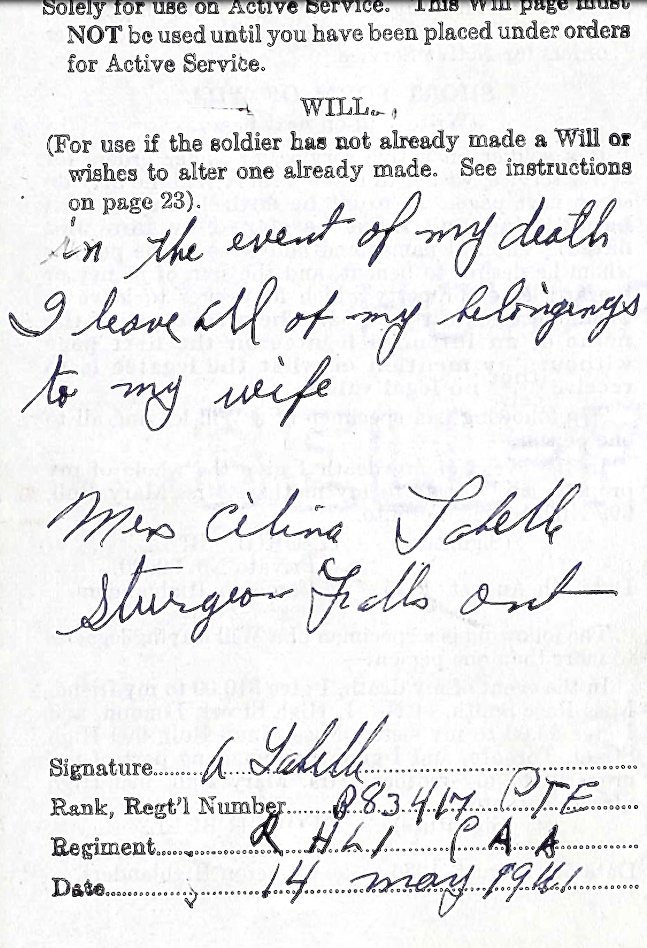 Solely for use on Active Service. This Will page must
NOT be used until you have been placed under orders
for Active Service.
WILL.
(For use if the soldier has not already made a Will or
wishes to alter one already made. See instructions
on page 23).
in the event of my death
I leave all of my belongings
to my wife
Mrs Cilina Labelle
Sturgeon Falls Ont
Signature A Labelle
Rank, Regt'l Number B83417 PTE
Regiment R H L I C A A
Date 14 may 1941